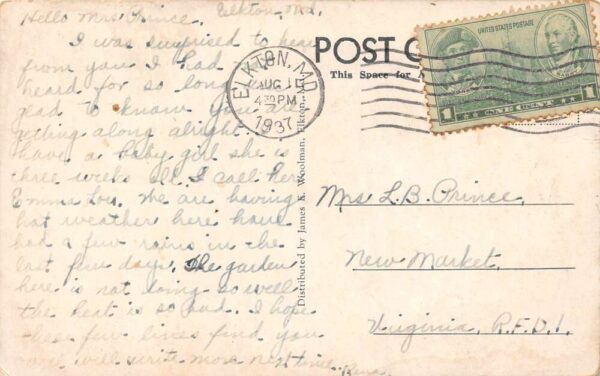 Hello Mrs Prince. Elkton, Md.
I was surprised to hear
from you I had
heard for so long
glad to know you are
getting along alright. I
have a baby girl she is
three weeks old. I call her
Emma Lou. We are having
hot weather here have
had a few rains in the
last few days. The garden
here is not doing so well
the heat is so bad. I hope
these few lines find you
well will write more next time.
Distributed by James K. Woolman, Elkton,
POST C
This Space for A
ELKTON, MD.
AUG 11
4 30 PM
1937
UNITED STATES POSTAGE
1 ONE CENT 1
Mrs L.B. Prince,
New Market,
Virginia, R.F.D.1.